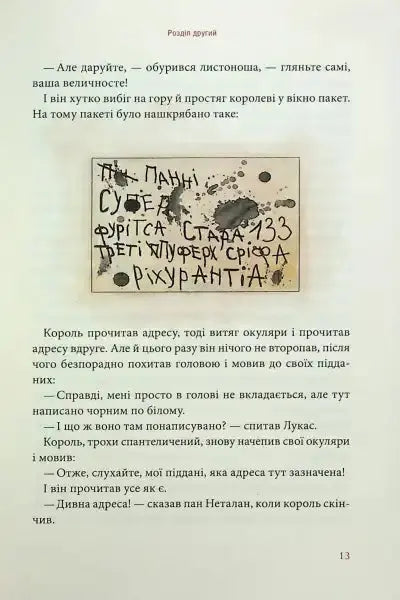 Розділ другий
— Але даруйте, — обурився листоноша, — гляньте самі,
ваша величносте!
І він хутко вибіг на гору й простяг королеві у вікно пакет.
На тому пакеті було нашкрябано таке:
ПАННІ
СУПЕР
ФУРІТСА СТАРА 133
ТРЕТІ ПУФЕРХ СРІФА
РІХУРАНТІА
Король прочитав адресу, тоді витяг окуляри і прочитав
адресу вдруге. Але й цього разу він нічого не второпав, після
чого безпорадно похитав головою і мовив до своїх підда-
них:
— Справді, мені просто в голові не вкладається, але тут
написано чорним по білому.
— І що ж воно там понаписувано? — спитав Лукас.
Король, трохи спантеличений, знову начепив свої окуляри
і мовив:
— Отже, слухайте, мої піддані, яка адреса тут зазначена!
І він прочитав усе як є.
— Дивна адреса! — сказав пан Неталан, коли король скін-
чив.
13